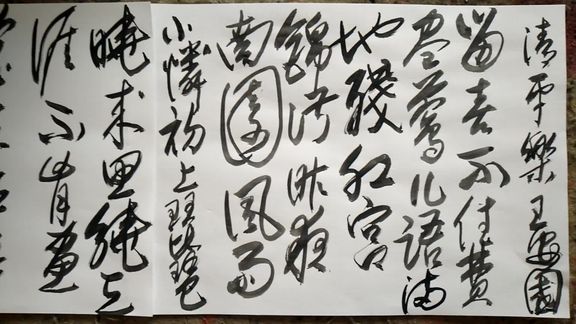 清平樂王安國
留春不住費
盡鶯儿語滿
地殘紅宮
錦污昨夜
南園風雨
小憐初上琵琶
曉來思繞天
涯不肯畫